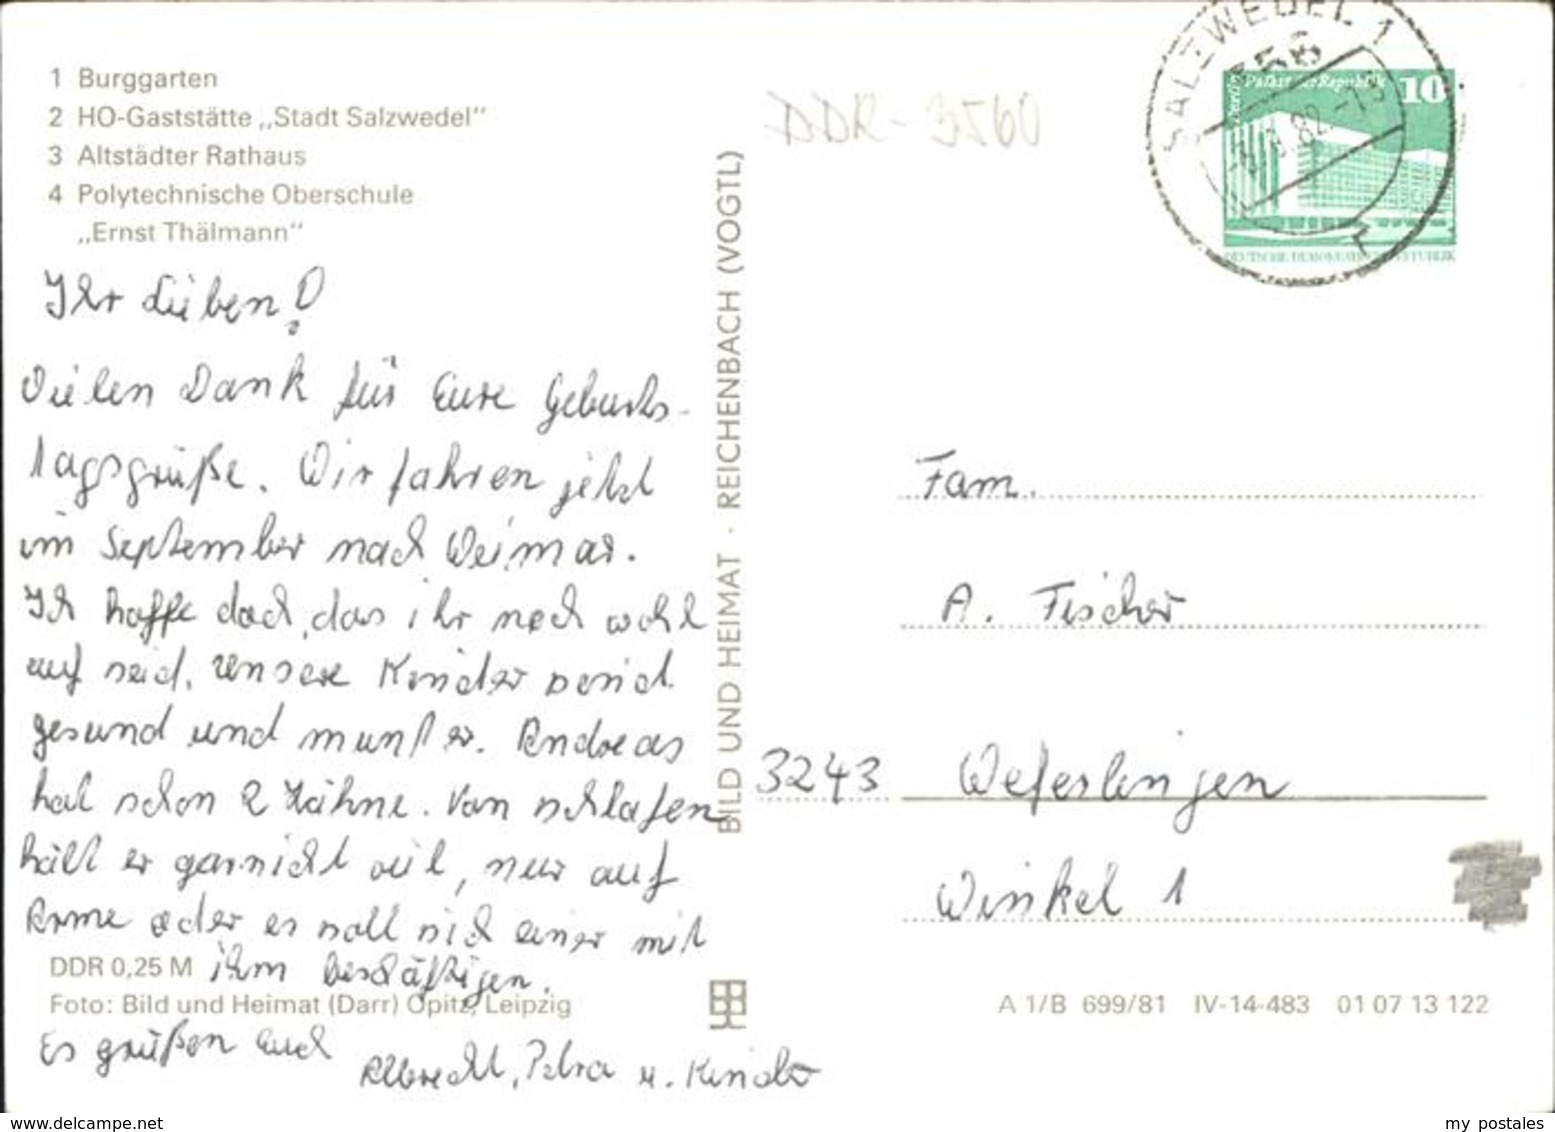 1 Burggarten
2 HO-Gaststätte „Stadt Salzwedel"
3 Altstädter Rathaus
4 Polytechnische Oberschule
„Ernst Thälmann"
Ihr Lieben!
Vielen Dank für Eure Geburts-
tagsgrüße. Wir fahren jetzt
im September nach Weimar.
Ich hoffe doch, das ihr noch wohl
auf seid. Unsere Kinder sind
gesund und munter. Andreas
hat schon 2 Zähne. Von schlafen
hält er garnicht viel, nur auf
Arme oder es soll sich einer mit
ihm beschäftigen.
DDR 0,25 M
Foto: Bild und Heimat (Darr) Opitz, Leipzig
Es grüßen Euch
Albrecht, Petra u. Kinder
BILD UND HEIMAT · REICHENBACH (VOGTL)
DDR - 3560
SALZWEDEL 1
356
82.-13
r
Palast der Republik
10
DEUTSCHE DEMOKRATISCHE REPUBLIK
Fam.
A. Fischer
3243 Weferlingen
Winkel 1
A 1/B 699/81 IV-14-483 01 07 13 122
my postales
www.delcampe.net